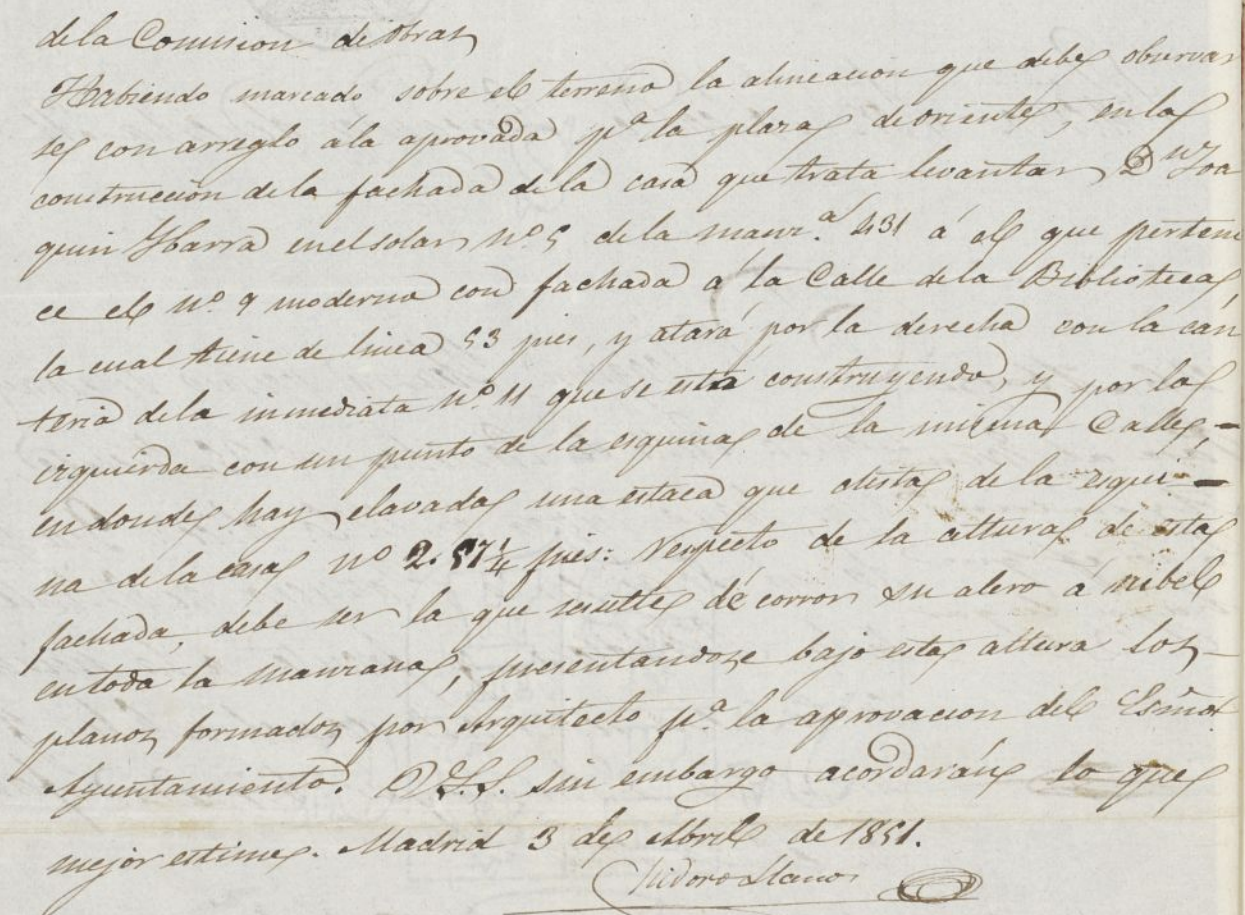 dela Comision de Obras
Habiendo marcado sobre el terreno la alineacion que debe observar
se con arreglo ála aprovada pª la plaza de oriente, en la
construccion dela fachada dela casa que trata levantar Dn Joa
quin Ybarra enel solar nº 5 dela manz.ª 431 á el que pertene
ce el nº 9 moderno con fachada á la Calle dela Biblioteca,
la cual tiene de linea 53 pies, y atará por la derecha con la can
teria dela inmediata nº 11 que se está construyendo, y por la
izquierda con un punto de la esquina de la misma Calle,-
en donde hay clavada una estaca que dista de la esqui-
na dela casa nº 2. 57¼ pies: Respecto de la altura de esta
fachada, debe ser la que resulte de correr su alero á nibel
en toda la manzana, presentandose bajo esta altura los-
planos formados por Arquitecto pª la aprovacion del Esmo
Ayuntamiento. V.S.S. sin embargo acordarán lo que
mejor estime. Madrid 3 de Abril de 1851.
Isidoro Llanos